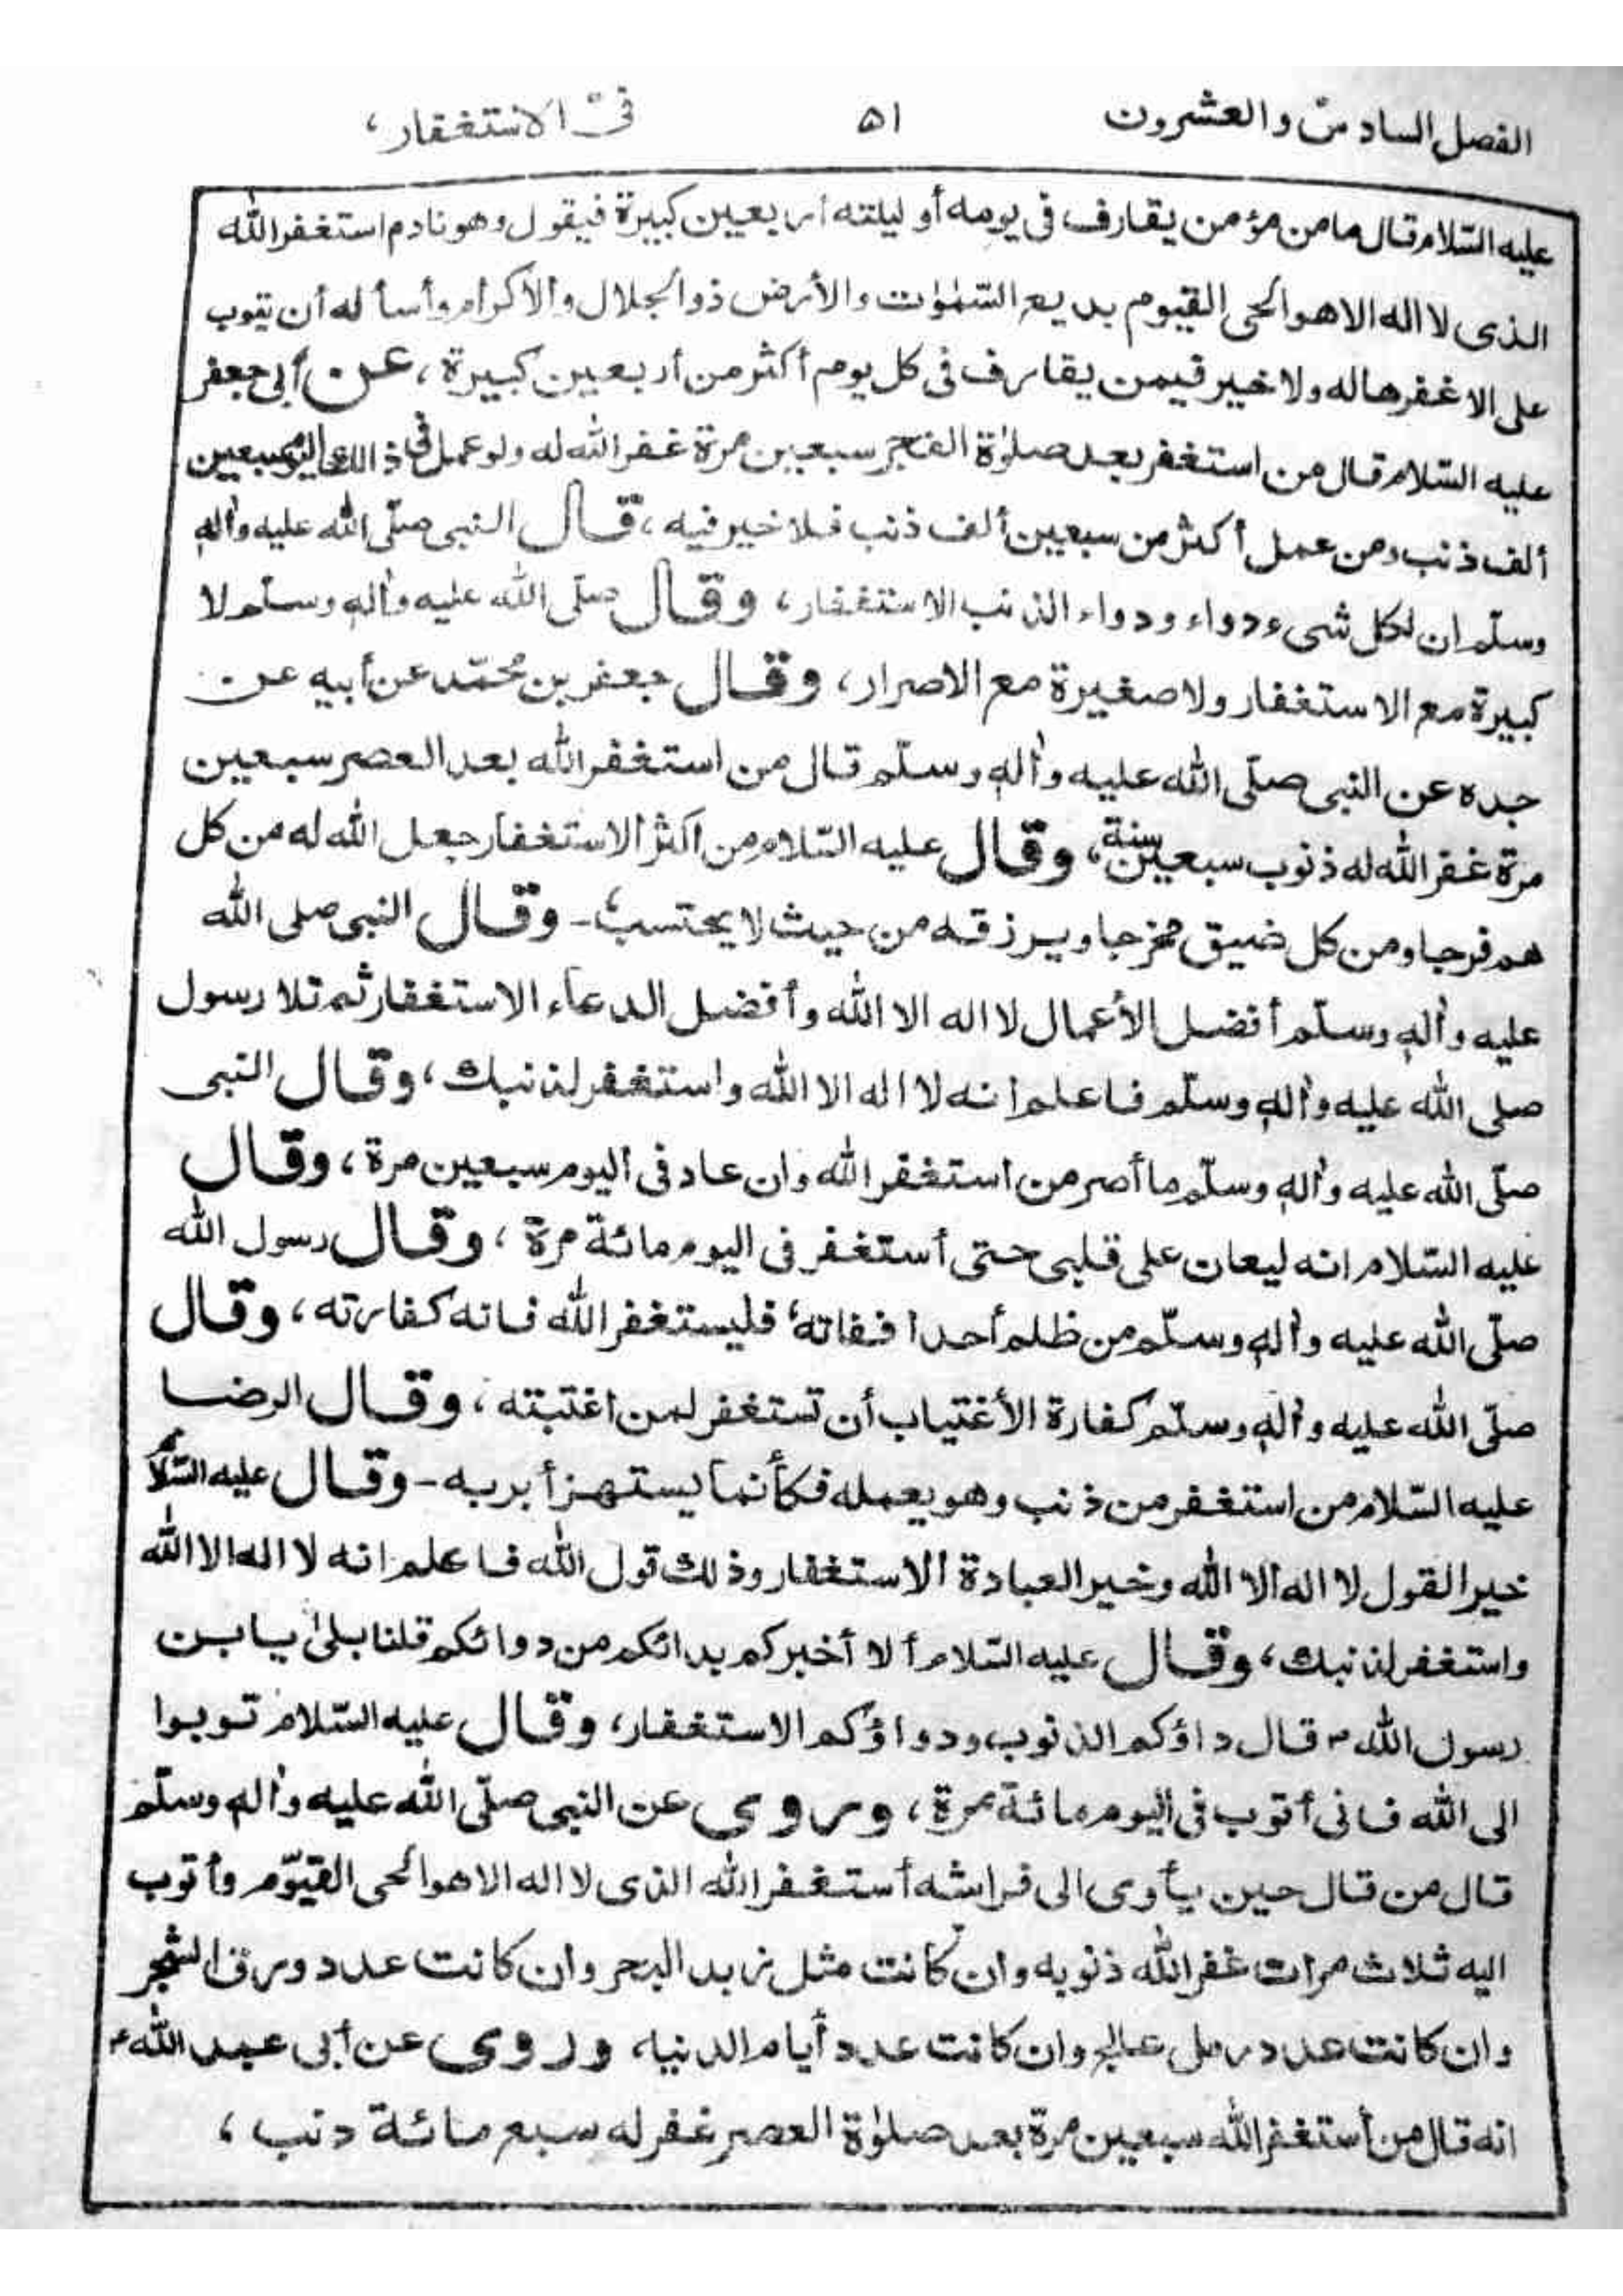 الفصل السادس والعشرون ۵۱ فى الاستغفار،
عليه السّلام قال ما من مؤمن يقارف فى يومه أو ليلته أربعين كبيرة فيقول وهو نادم استغفر الله
الذى لا اله الا هو الحى القيوم بديع السّمٰوٰت والأرض ذو الجلال والاكرام وأسأله أن يتوب
على الا غفرها له ولا خير فيمن يقارف فى كل يوم أكثر من أربعين كبيرة، عن أبى جعفر
عليه السّلام قال من استغفر بعد صلوٰة الفجر سبعين مرة غفر الله له ولو عمل فى ذالك اليوم سبعين
ألف ذنب ومن عمل أكثر من سبعين ألف ذنب فلا خير فيه، قال النبى صلّى الله عليه واٰله
وسلّم ان لكل شىء دواء ودواء الذنب الاستغفار، وقال صلّى الله عليه واٰله وسلّم لا
كبيرة مع الاستغفار ولا صغيرة مع الاصرار، وقال جعفر بن محمّد عن أبيه عن
جده عن النبى صلّى الله عليه واٰله وسلّم قال من استغفر الله بعد العصر سبعين
مرة غفر الله له ذنوب سبعين سنة، وقال عليه السّلام من أكثر الاستغفار جعل الله له من كل
هم فرجا ومن كل ضيق مخرجا ويرزقه من حيث لا يحتسب؛- وقال النبى صلى الله
عليه واٰله وسلّم أفضل الأعمال لا اله الا الله وأفضل الدعاء الاستغفار ثم تلا رسول
صلى الله عليه واٰله وسلّم فاعلم انه لا اله الا الله واستغفر لذنبك، وقال النبى
صلّى الله عليه واٰله وسلّم ما أصر من استغفر الله وان عاد فى اليوم سبعين مرة، وقال
عليه السّلام انه ليعان على قلبى حتى أستغفر فى اليوم مائة مرة، وقال رسول الله
صلّى الله عليه واٰله وسلّم من ظلم أحدا ففاته، فليستغفر الله فانه كفارته، وقال
صلّى الله عليه واٰله وسلّم كفارة الأغتياب أن تستغفر لمن اغتبته، وقال الرضا
عليه السّلام من استغفر من ذنب وهو يعمله فكأنما يستهزأ بربه - وقال عليه السّلام
خير القول لا اله الا الله وخير العبادة الاستغفار وذلك قول الله فاعلم انه لا اله الا الله
واستغفر لذنبك، وقال عليه السّلام ألا أخبركم بدائكم من دوائكم قلنا بلىٰ يا بن
رسول الله ؑ قال داؤكم الذنوب ودواؤكم الاستغفار، وقال عليه السّلام توبوا
الى الله فانى أتوب فى اليوم مائة مرة، وروى عن النبى صلّى الله عليه واٰله وسلّم
قال من قال حين يأوى الى فراشه أستغفر الله الذى لا اله الا هو الحى القيّوم وأتوب
اليه ثلاث مرات غفر الله ذنوبه وان كانت مثل زبد البحر وان كانت عدد ورق الشجر
وان كانت عدد رمل عالج وان كانت عدد أيام الدنيه وروى عن أبى عبد الله ؑ
انه قال من أستغفر الله سبعين مرة بعد صلوٰة العصر غفر له سبع مائة دنب،